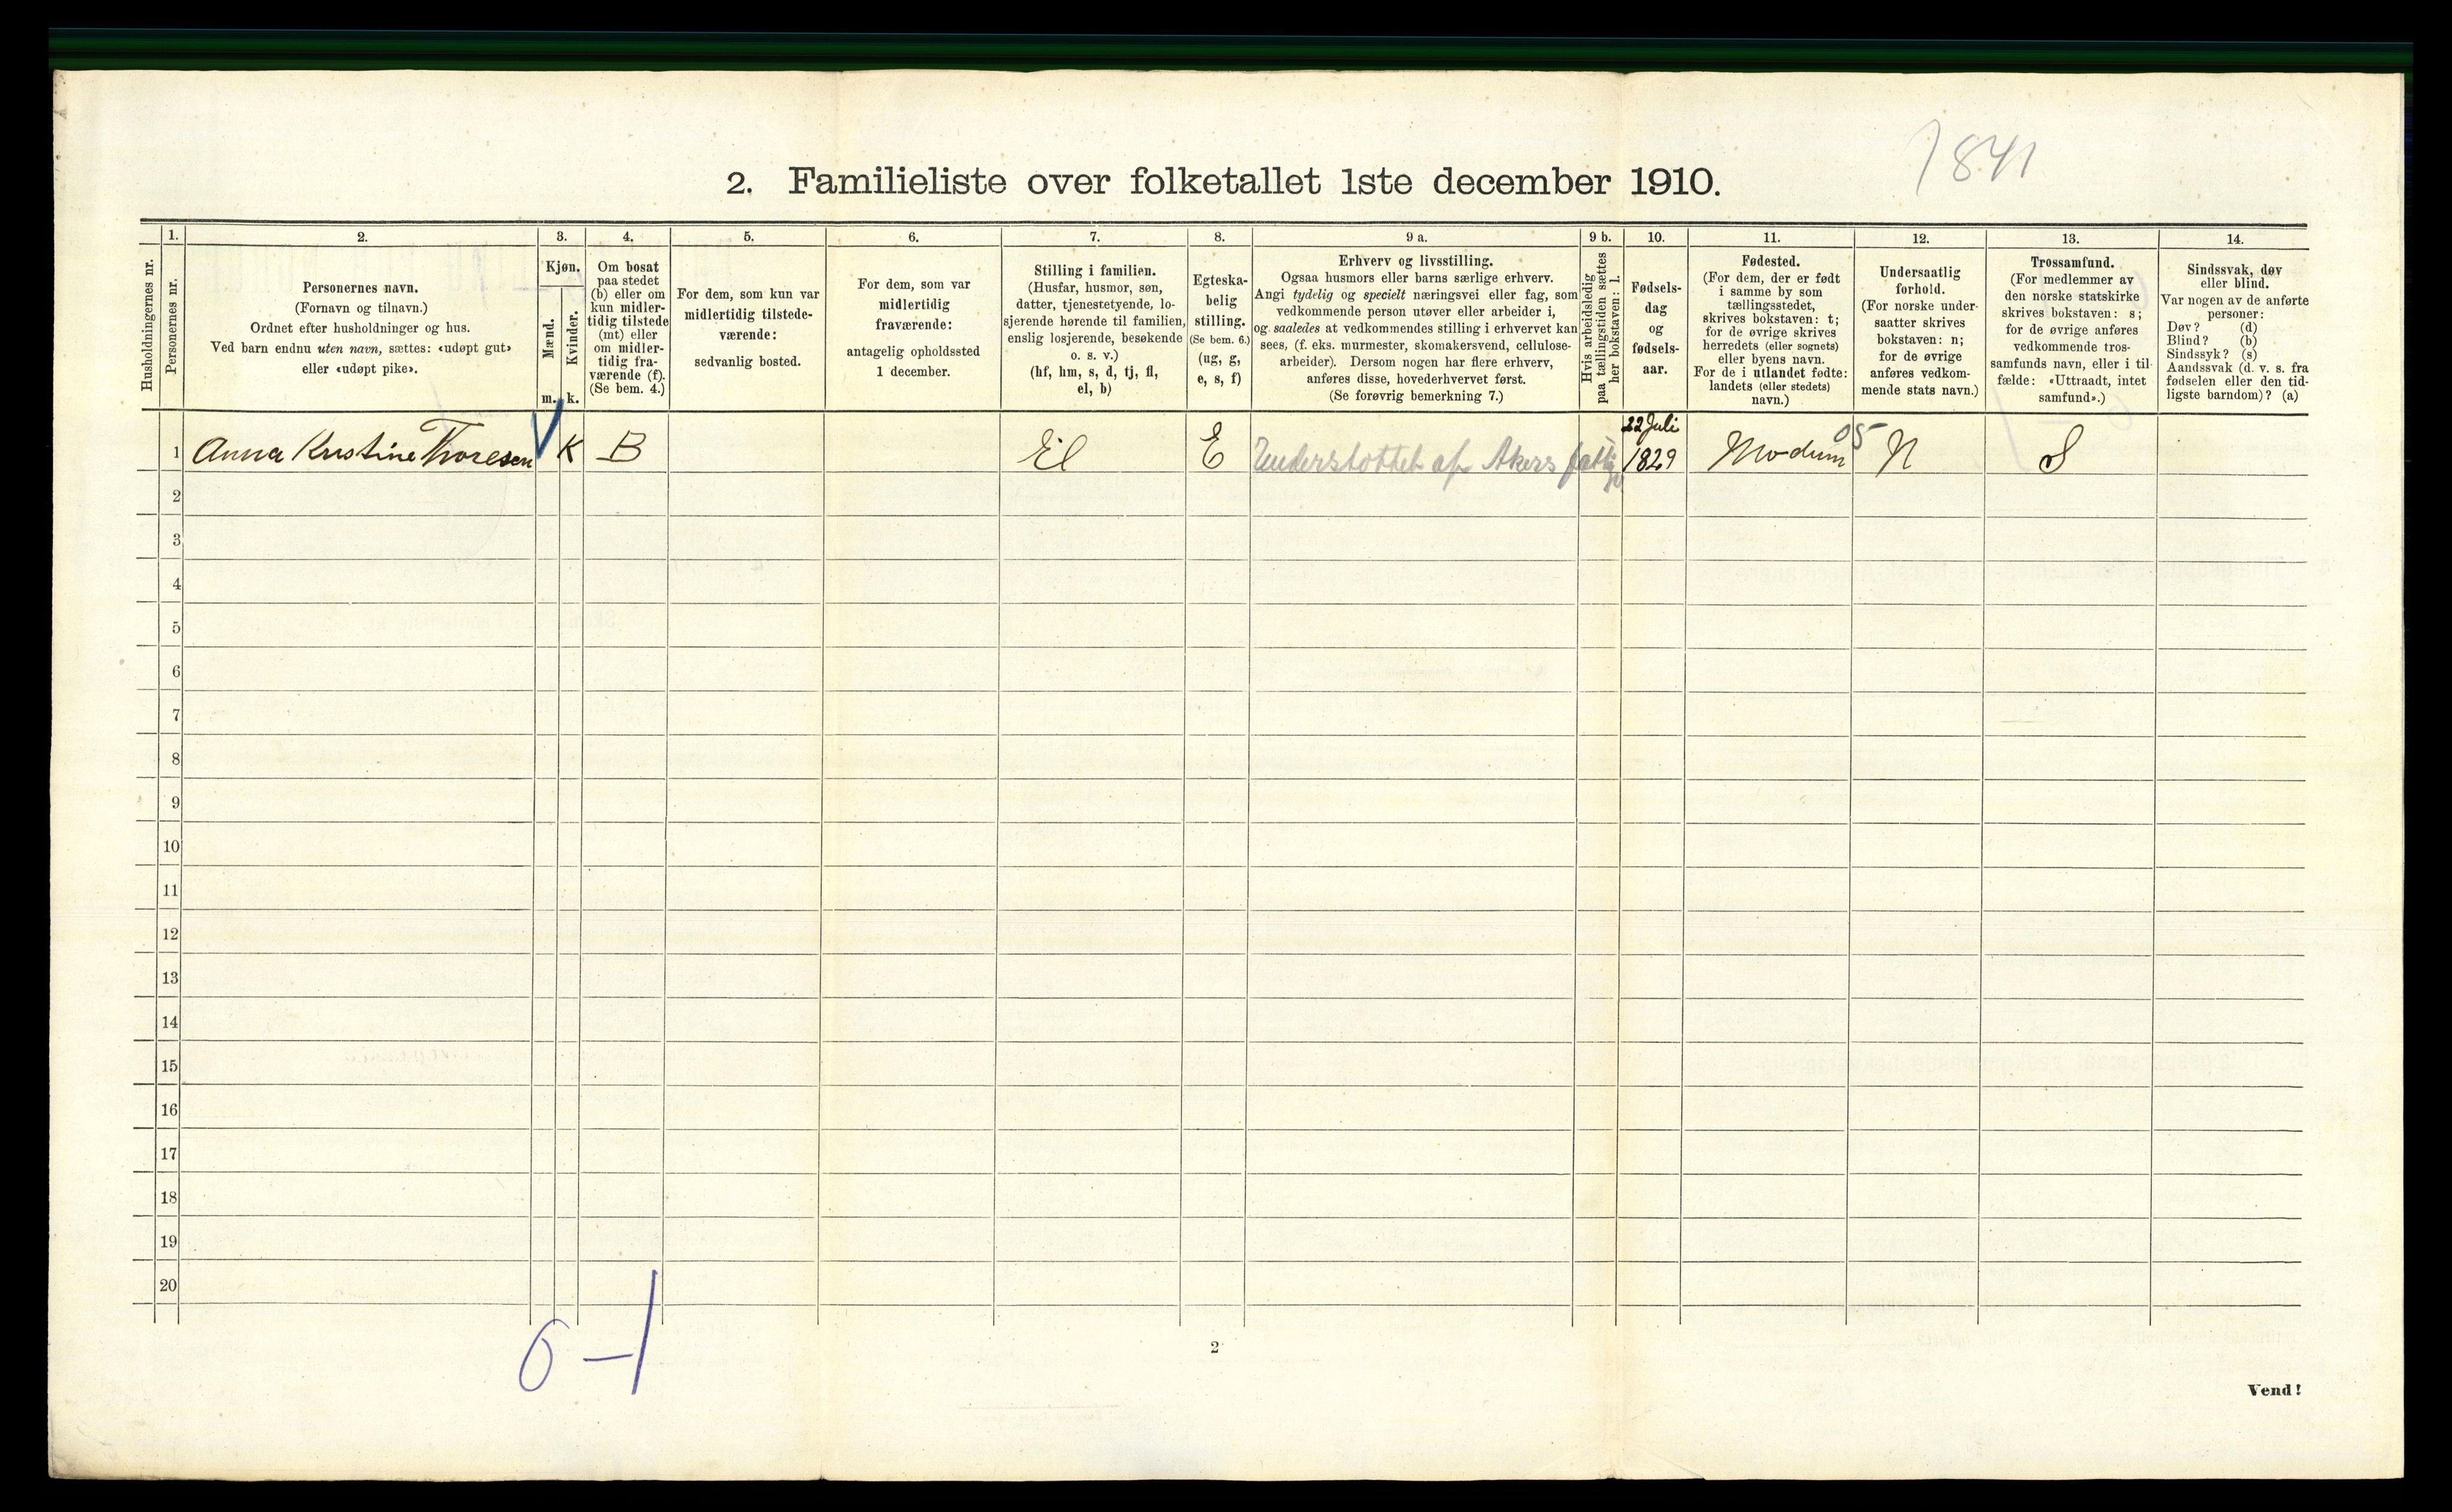 7841
2. Familieliste over folketallet 1ste december 1910.
Husholdningernes nr.
1.
Personernes nr.
2.
Personernes navn.
(Fornavn og tilnavn.)
Ordnet efter husholdninger og hus.
Ved barn endnu uten navn, sættes: «udøpt gut»
eller «udøpt pike».
3.
Kjøn.
Mænd.
Kvinder.
m. k.
4.
Om bosat
paa stedet
(b) eller om
kun midler-
tidig tilstede
(mt) eller
om midler-
tidig fra-
værende (f).
(Se bem. 4.)
5.
For dem, som kun var
midlertidig tilstede-
værende:
sedvanlig bosted.
6.
For dem, som var
midlertidig
fraværende:
antagelig opholdssted
1 december.
7.
Stilling i familien.
(Husfar, husmor, søn,
datter, tjenestetyende, lo-
sjerende hørende til familien,
enslig losjerende, besøkende
o. s. v.)
(hf, hm, s, d, tj, fl,
el, b)
8.
Egteska-
belig
stilling.
(Se bem. 6.)
(ug, g,
e, s, f)
9 a.
Erhverv og livsstilling.
Ogsaa husmors eller barns særlige erhverv.
Angi tydelig og specielt næringsvei eller fag, som
vedkommende person utøver eller arbeider i,
og saaledes at vedkommendes stilling i erhvervet kan
sees, (f. eks. murmester, skomakersvend, cellulose-
arbeider). Dersom nogen har flere erhverv,
anføres disse, hovederhvervet først.
(Se forøvrig bemerkning 7.)
9 b.
Hvis arbeidsledig
paa tællingstiden sættes
her bokstaven: l.
10.
Fødsels-
dag
og
fødsels-
aar.
11.
Fødested.
(For dem, der er født
i samme by som
tællingsstedet,
skrives bokstaven: t;
for de øvrige skrives
herredets (eller sognets)
eller byens navn.
For de i utlandet fødte:
landets (eller stedets)
navn.)
12.
Undersaatlig
forhold.
(For norske under-
saatter skrives
bokstaven: n;
for de øvrige
anføres vedkom-
mende stats navn.)
13.
Trossamfund.
(For medlemmer av
den norske statskirke
skrives bokstaven: s;
for de øvrige anføres
vedkommende tros-
samfunds navn, eller i til-
fælde: «Uttraadt, intet
samfund».)
14.
Sindssvak, døv
eller blind.
Var nogen av de anførte
personer:
Døv? (d)
Blind? (b)
Sindssyk? (s)
Aandssvak (d. v. s. fra
fødselen eller den tid-
ligste barndom)? (a)
1 Anna Kristine Thoresen K B El E Understøttet af Akers 22 Juli 1829 Modum 05 N S
2
3
4
5
6
7
8
9
10
11
12
13
14
15
16
17
18
19
20
0-1
2
Vend!